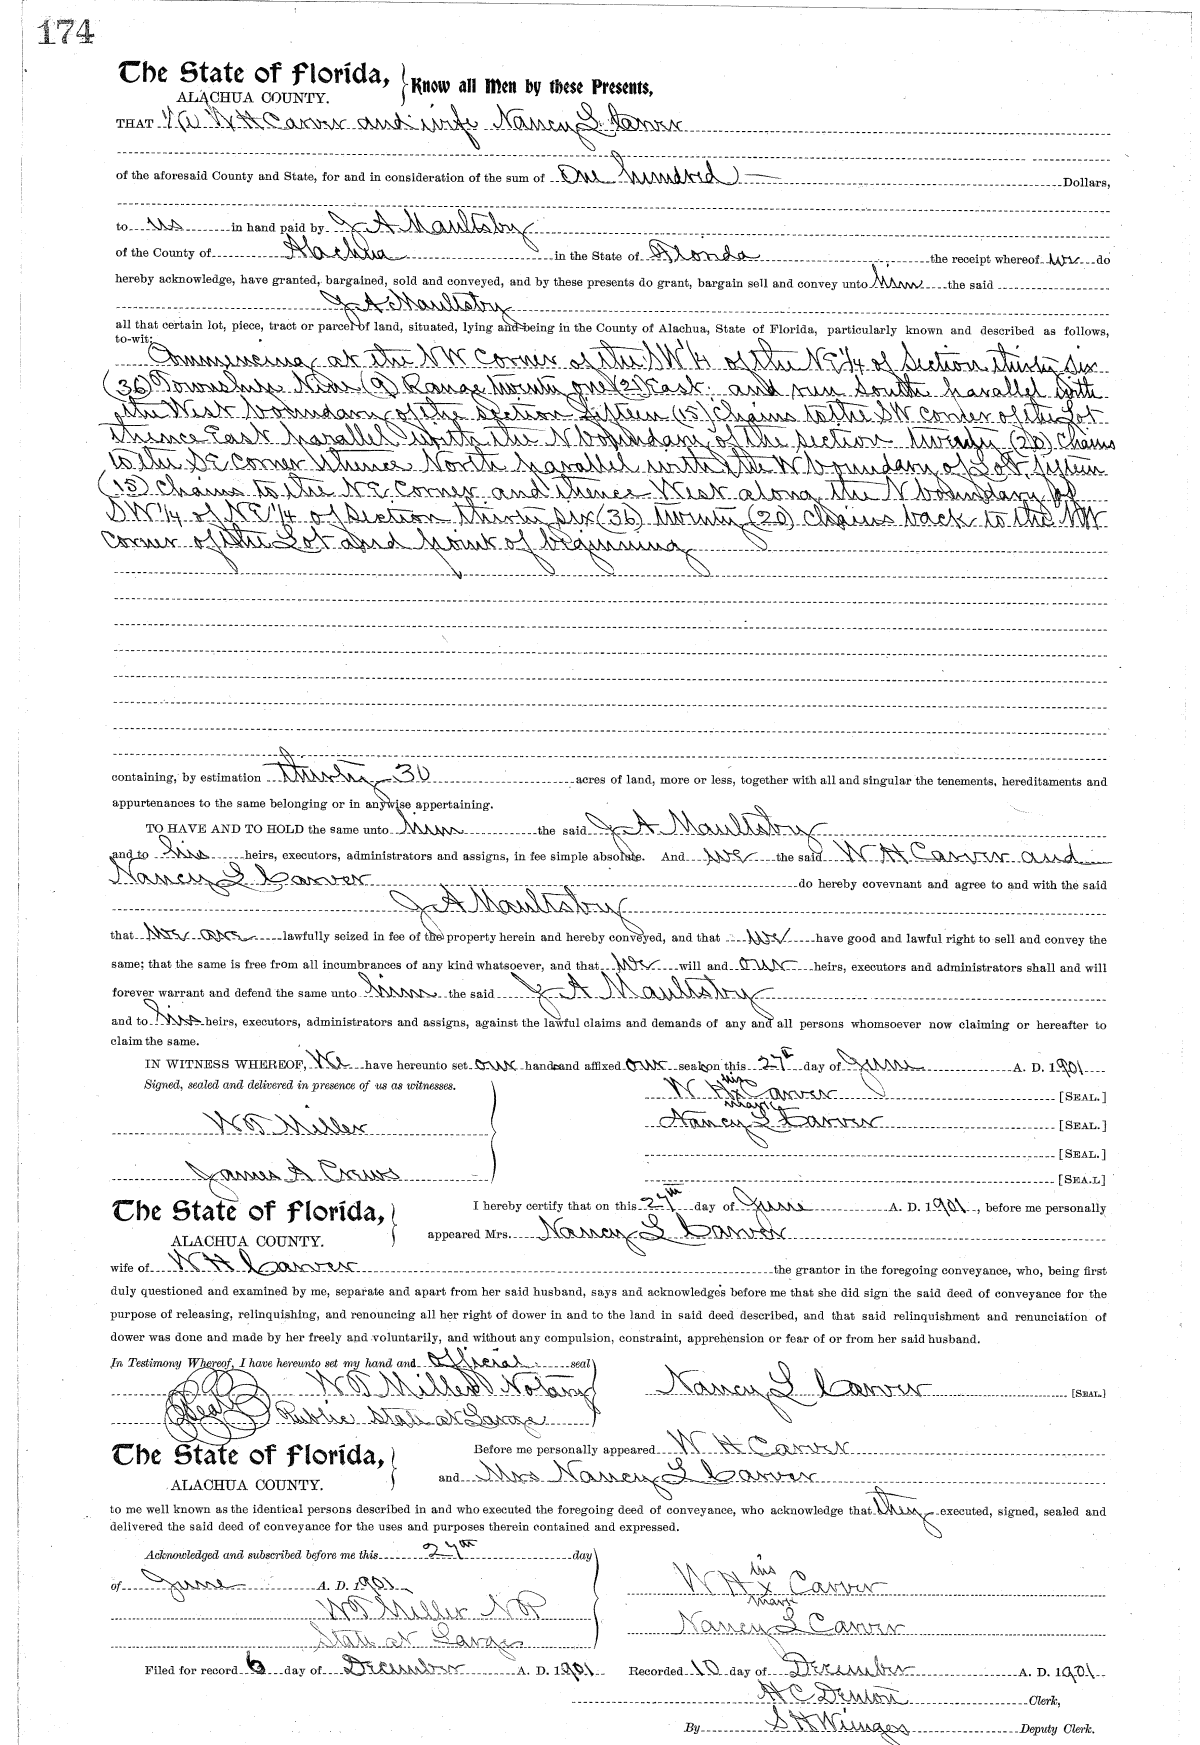 174
The State of Florida, } Know all Men by these Presents,
ALACHUA COUNTY.
THAT We W H Carver and wife Nancy L Carver
of the aforesaid County and State, for and in consideration of the sum of One hundred — Dollars,
to us in hand paid by J A Maultsby
of the County of Alachua in the State of Florida the receipt whereof we do
hereby acknowledge, have granted, bargained, sold and conveyed, and by these presents do grant, bargain sell and convey unto him the said
J A Maultsby
all that certain lot, piece, tract or parcel of land, situated, lying and being in the County of Alachua, State of Florida, particularly known and described as follows,
to-wit:
Commencing at the NW Corner of the SW 1/4 of the NE 1/4 of Section thirty six
(36) Township Nine (9) Range twenty one (21) East. and run South parallel with
the West boundary of the section fifteen (15) Chains to the SW corner of the Lot
thence East parallel with the N boundary of the section twenty (20) Chains
to the SE corner thence North parallel with the W boundary of Lot fifteen
(15) Chains to the NE Corner and thence West along the N boundary of
SW 1/4 of NE 1/4 of Section thirty six (36) twenty (20) Chains back to the NW
Corner of the Lot and point of beginning
containing, by estimation thirty 30 acres of land, more or less, together with all and singular the tenements, hereditaments and
appurtenances to the same belonging or in anywise appertaining.
TO HAVE AND TO HOLD the same unto him the said J A Maultsby
and to his heirs, executors, administrators and assigns, in fee simple absolute. And we the said W H Carver and
Nancy L Carver do hereby covevnant and agree to and with the said
J A Maultsby
that we are lawfully seized in fee of the property herein and hereby conveyed, and that we have good and lawful right to sell and convey the
same; that the same is free from all incumbrances of any kind whatsoever, and that we will and our heirs, executors and administrators shall and will
forever warrant and defend the same unto him the said J A Maultsby
and to his heirs, executors, administrators and assigns, against the lawful claims and demands of any and all persons whomsoever now claiming or hereafter to
claim the same.
IN WITNESS WHEREOF, We have hereunto set our hands and affixed our seals on this 27th day of June A. D. 1901
Signed, sealed and delivered in presence of us as witnesses.
his
W H x Carver [SEAL.]
mark
W T Miller Nancy L Carver [SEAL.]
[SEAL.]
James A Crews [SEA.L]
The State of Florida, } I hereby certify that on this 27th day of June A. D. 1901, before me personally
ALACHUA COUNTY. appeared Mrs. Nancy L Carver
wife of W H Carver the grantor in the foregoing conveyance, who, being first
duly questioned and examined by me, separate and apart from her said husband, says and acknowledges before me that she did sign the said deed of conveyance for the
purpose of releasing, relinquishing, and renouncing all her right of dower in and to the land in said deed described, and that said relinquishment and renunciation of
dower was done and made by her freely and voluntarily, and without any compulsion, constraint, apprehension or fear of or from her said husband.
In Testimony Whereof, I have hereunto set my hand and official seal
W T Miller Notary Nancy L Carver [SEAL.]
Seal Public State at Large
The State of Florida, } Before me personally appeared W H Carver
ALACHUA COUNTY. and Mrs Nancy L Carver
to me well known as the identical persons described in and who executed the foregoing deed of conveyance, who acknowledge that they executed, signed, sealed and
delivered the said deed of conveyance for the uses and purposes therein contained and expressed.
Acknowledged and subscribed before me this 27th day
his
of June A. D. 1901 W H x Carver
mark
W T Miller N P Nancy L Carver
State at Large
Filed for record 6 day of December A. D. 1901 Recorded 10 day of December A. D. 1901
H C Denton Clerk,
By S H Wienges Deputy Clerk.